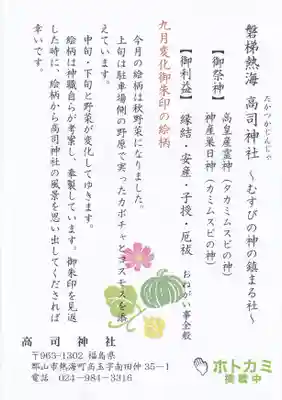 磐梯熱海 高司神社 ～むすびの神の鎮まる社～
たかつかじんじゃ
【御祭神】
高皇産霊神（タカミムスビの神）
神産巣日神（カミムスビの神）
【御利益】
縁結・安産・子授・厄祓 おねがい事全般
九月変化御朱印の絵柄
今月の絵柄は秋野菜になりました。
上旬は駐車場側の野原で実ったカボチャとコスモスを添えています。
中旬・下旬と野菜が変化してゆきます。
絵柄は神職自らが考案し、奉製しています。御朱印を見返した時に、絵柄から高司神社の風景を思い出してくだされば幸いです。
高司神社
〒963-1302 福島県
郡山市熱海町高玉字南田仲35-1
電話 024-984-3316
ホトカミ
掲載中